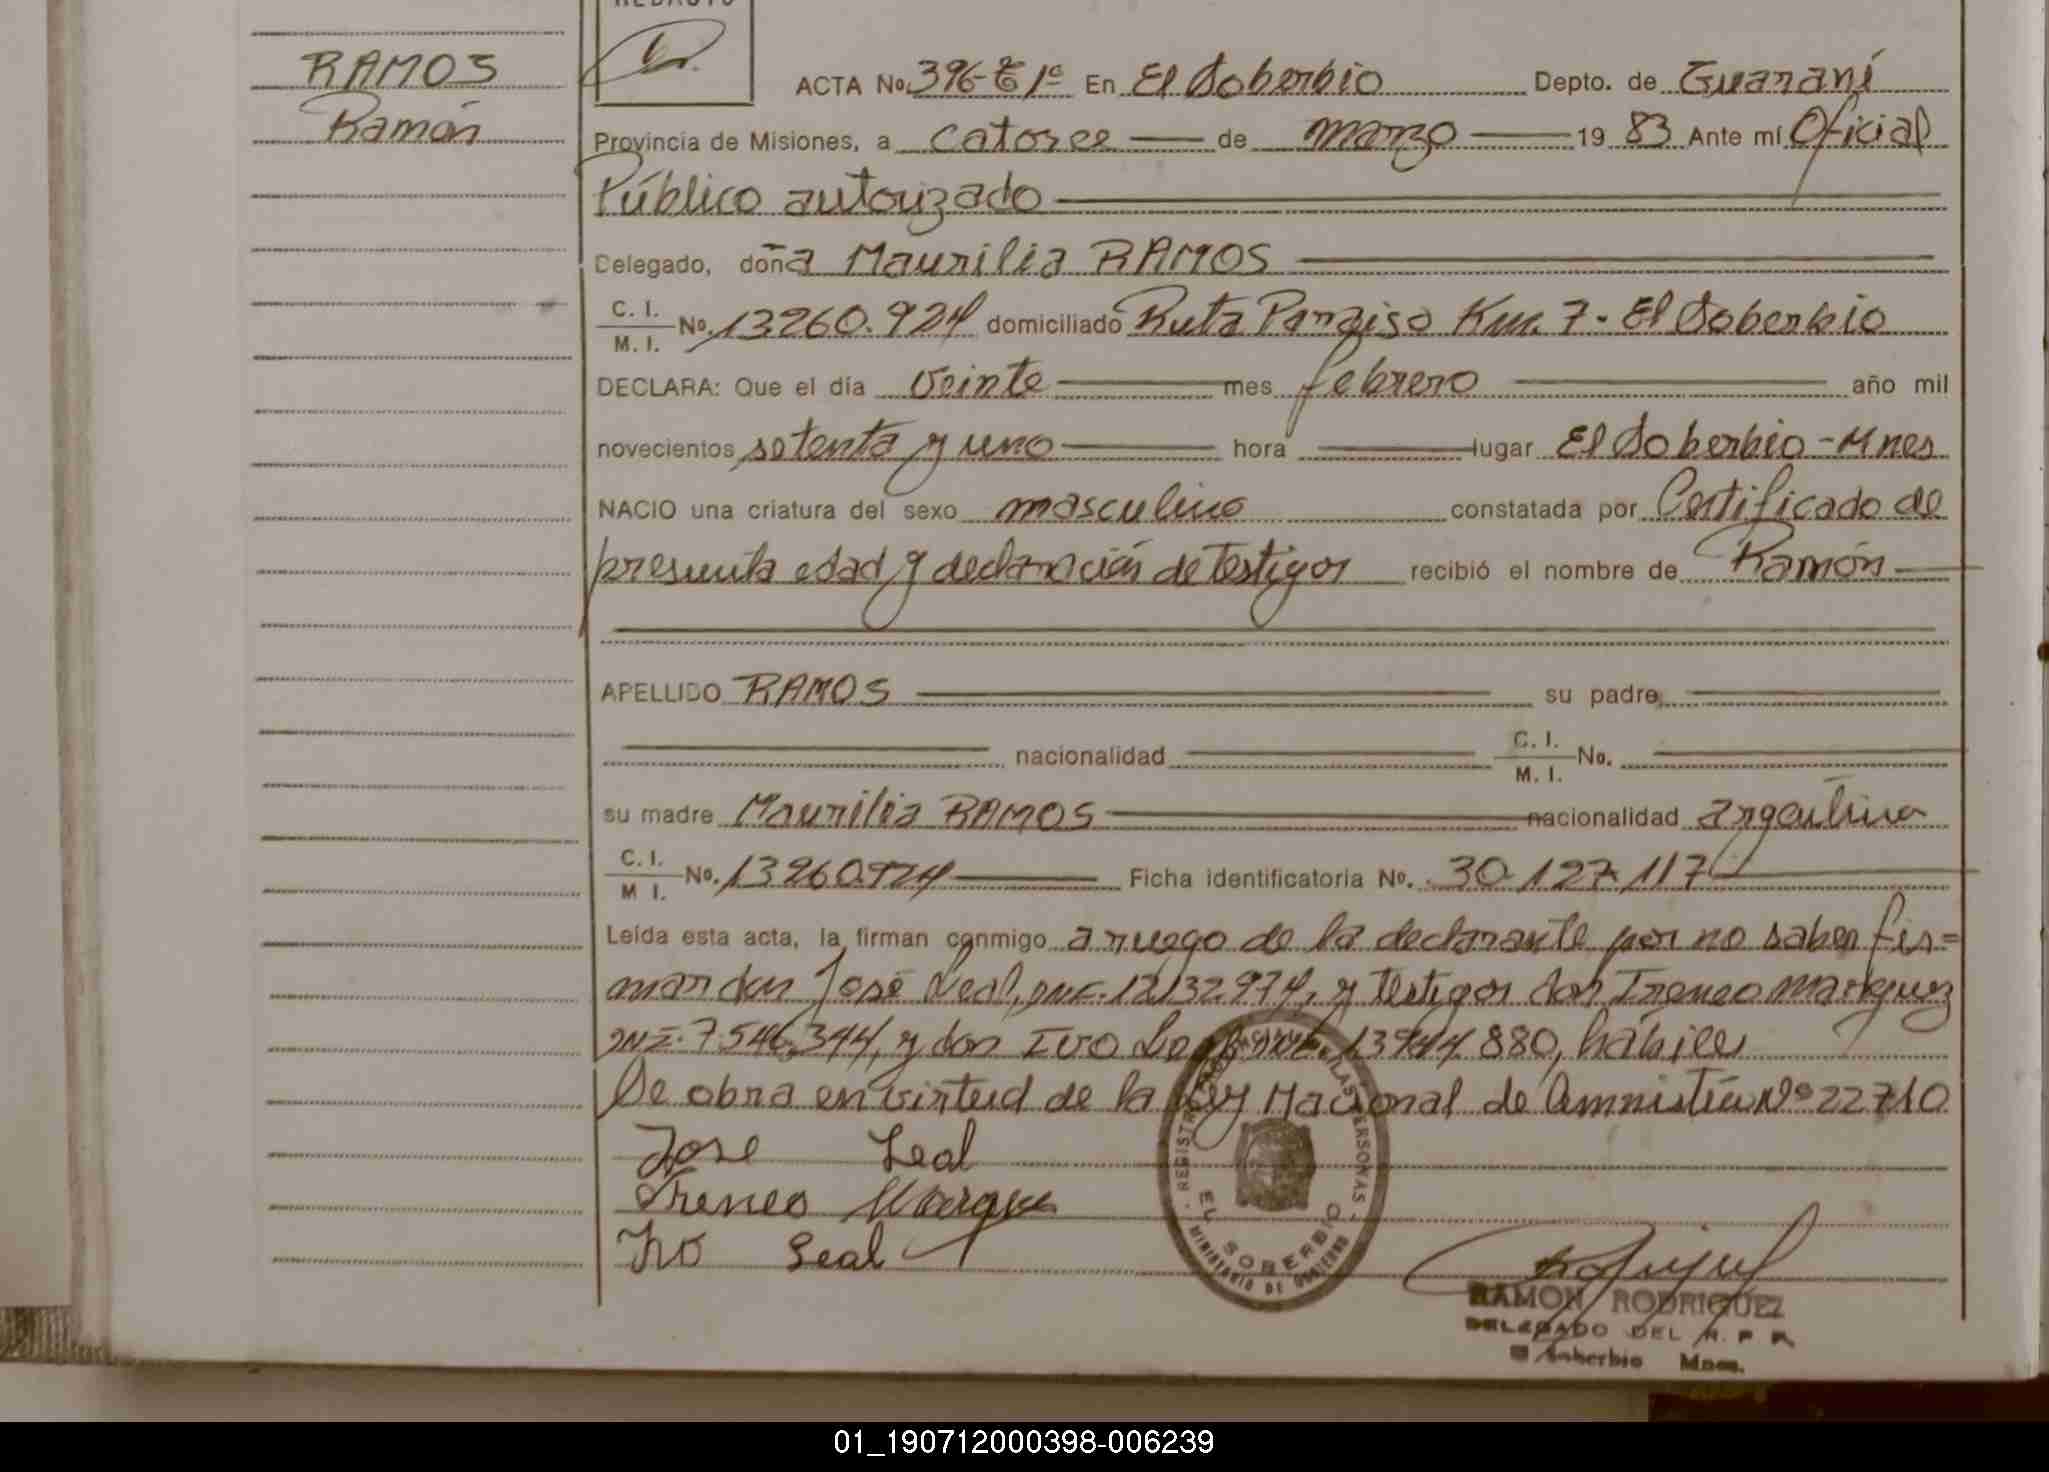 REDACTO
RAMOS
Ramón
ACTA No. 396-T 1º En El Soberbio Depto. de Guaraní
Provincia de Misiones, a catorce de marzo 19 83 Ante mí Oficial
Público autorizado
Delegado, doña Maurilia RAMOS
C. I.
M. I. No. 13260.924 domiciliado Ruta Paraiso Km. 7 - El Soberbio
DECLARA: Que el día veinte mes febrero año mil
novecientos setenta y uno hora lugar El Soberbio - Mnes
NACIO una criatura del sexo masculino constatada por Certificado de
presunta edad y declaración de testigos recibió el nombre de Ramón
APELLIDO RAMOS su padre
nacionalidad C. I.
M. I. No.
su madre Maurilia RAMOS nacionalidad argentina
C. I.
M I. No. 13260924 Ficha identificatoria No. 30.127.117
Leída esta acta, la firman conmigo a ruego de la declarante por no saber fir=
mar don José Leal, 12132974, y testigos don Ireneo Markquez
DNI. 7.546.344, y don Ivo 13944880, hábiles
Se obra en virtud de la Ley Nacional de Amnistía Nº 22710
Jose Leal
Ireneo
Ivo Leal
EL SOBERBIO
MINISTERIO DE GOBIERNO
RAMON RODRIGUEZ
DELEGADO DEL R. P. P.
El Soberbio Mnes.
01_190712000398-006239